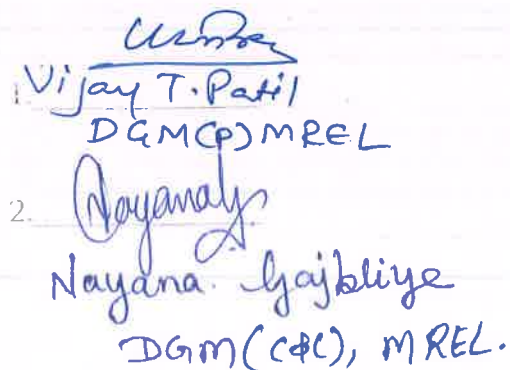 1.
Vijay T. Patil
DGM(P) MREL
2. Nayanaly.
Nayana. Gajbhiye
DGM(C&C), MREL.